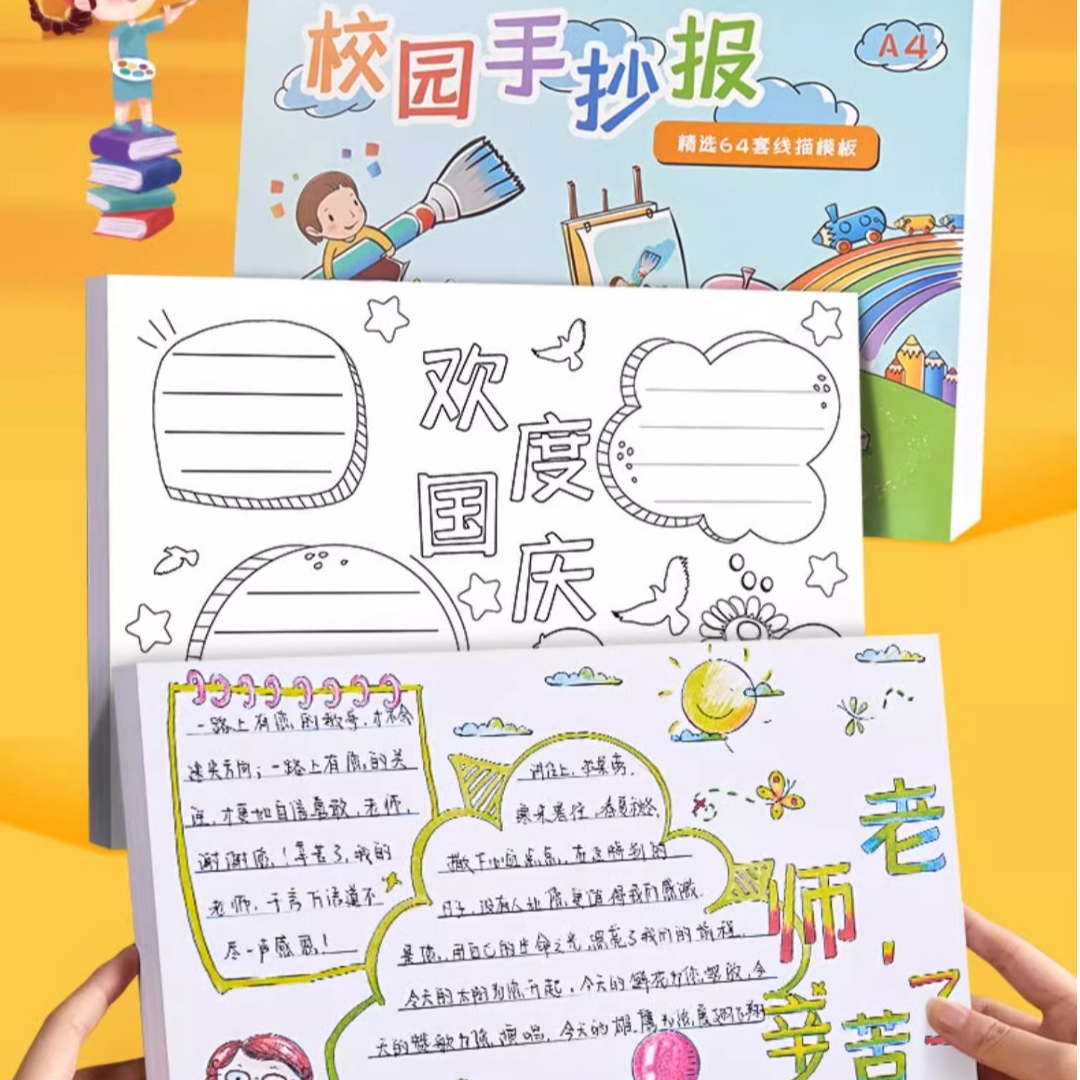 校园手抄报
A4
精选64套线描模板
欢度国庆
一路上有您的教导，才不会
迷失方向；一路上有您的关
注，才更加自信勇敢，老师，
谢谢您！辛苦了，我的
老师，千言万语道不
尽一声感恩！
讲台上，
寒来暑往，春夏秋冬，
撒下心血点点，在这特别的
日子，没有人比您更值得我们感激。
是您，用自己的生命之光，照亮了我们的旅程。
今天的太阳为您升起，今天的鲜花为您绽放，今
天的赞歌为您演唱，今天的雄鹰为您展翅飞翔
老师，辛苦了